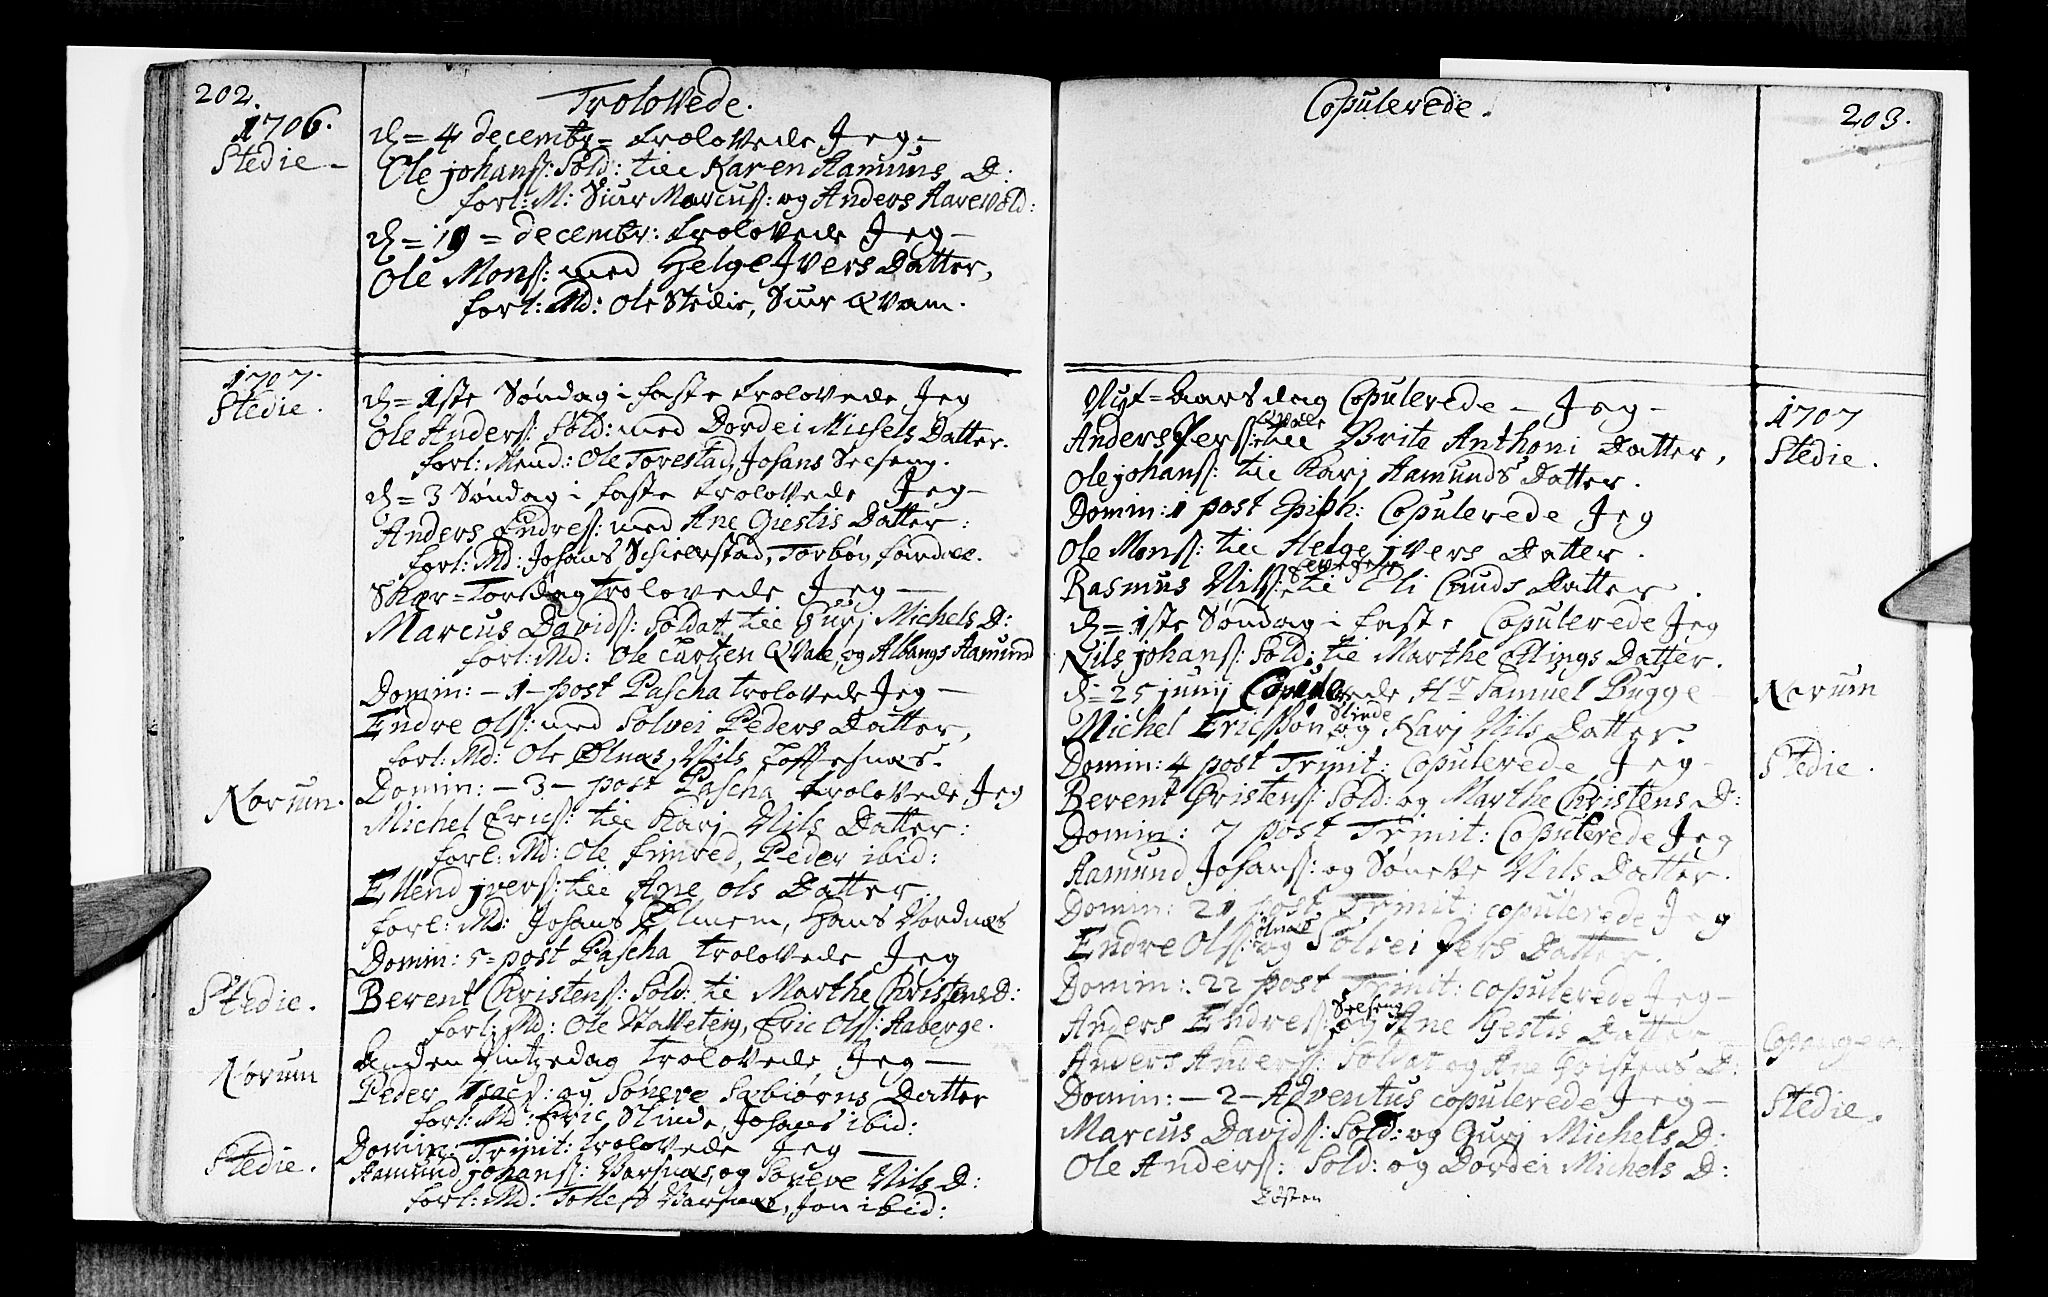 202.
Trolovede.
1706.
Stedie -
d = 4 decembr = trolovede Jeg -
Ole johanß: Sold: till Karen Aamuns D:
forl: M: Siur Marcuß: og Anders Aarevold:
d = 19 = decembr: trolovede Jeg -
Ole Monß: med Helge Jvers Datter,
forl: Md: Ole Stedie, Siur Qvam.
1707.
Stedie.
d = 1ste Søndag i faste trolovede Jeg
Ole Anderß: Sold: med Dordei Michels Datter.
forl: Mend: Ole Torestad, Johans Seeseng.
d = 3 Søndag i faste trolovede Jeg -
Anders Endreß: med Ane Giestis Datter:
forl: Md: Johans Schielerstad, Torbøn
Skær = Torsdag trolovede Jeg -
Marcus Davidß: Soldat till Gurj Michels D:
forl: Md: Ole Qvale, og Aamund
Domin: - 1 - post Pascha trolovede Jeg -
Endre Olß: med Solvei Peders Datter,
forl: Md: Ole Ølnæs, Nils Loftesnæs.
Norum.
Domin: - 3 - post Pascha trolovede Jeg
Michel Ericß: till Karj Nils Datter:
forl: Md: Ole fimred, Peder ibid:
Ellend jverß: till Ane Ols Datter.
forl: Md: Johans Elmem, Hans Nordnæs
Domin: 5 = post Pascha trolovede Jeg
Stedie.
Berent Christenß: Sold: til Marthe Christens D:
forl: Md: Ole Stalleteig, Eric Olß: Aaberge.
Norum
Anden Pintzedag trolovede Jeg -
Peder Isacß: og Søneve Sæbiørns Datter
forl: Md: Eric Slinde, Johans ibid:
Stedie.
Domin: Trinit: trolovede Jeg -
Aamund johanß: og Søneve Nils D:
forl: Md: Jon ibid:
Copulerede.
203.
1707
Stedie.
Nyt = Aarsdag Copulerede - Jeg -
Qvale
Anders Perß: till Brite Anthoni Datter,
Ole johanß: til Karj Aamunds Datter.
Domin: 1 post Epiph: Copulerede Jeg
Ole Monß: till Helge jvers Datter.
Rasmus Nilß: til Eli Cnuds Datter.
d = 1ste Søndag i faste Copulerede Jeg
Nils johanß: Sold: til Marthe Ellings Datter.
Norum
d = 25 junij Copulerede Hr Samuel Bugge
Slinde
Michel Ericßøn og Karj Nils Datter.
Stedie.
Domin: 4 post Trinit: Copulerede Jeg -
Berent Christenß: Sold: og Marthe Christens D:
Domin: 7 post Trinit: Copulerede Jeg
Aamund Johanß: og Søneve Nils Datter.
Domin: 21 post Trinit: copulerede Jeg
Ølnæs
Endre Olß: og Solvei Pers Datter.
Domin: 22 post Trinit: copulerede Jeg -
Seeseng
Anders Endreß: og Ane Gestis Datter
Copanger.
Anders Anderß: Soldat og Ane Christens D:
Stedie.
Domin: - 2 - Adventus copulerede Jeg -
Marcus Davidß: Sold: og Gurj Michels D:
Ole Anderß: Sold: og Dordei Michels D: